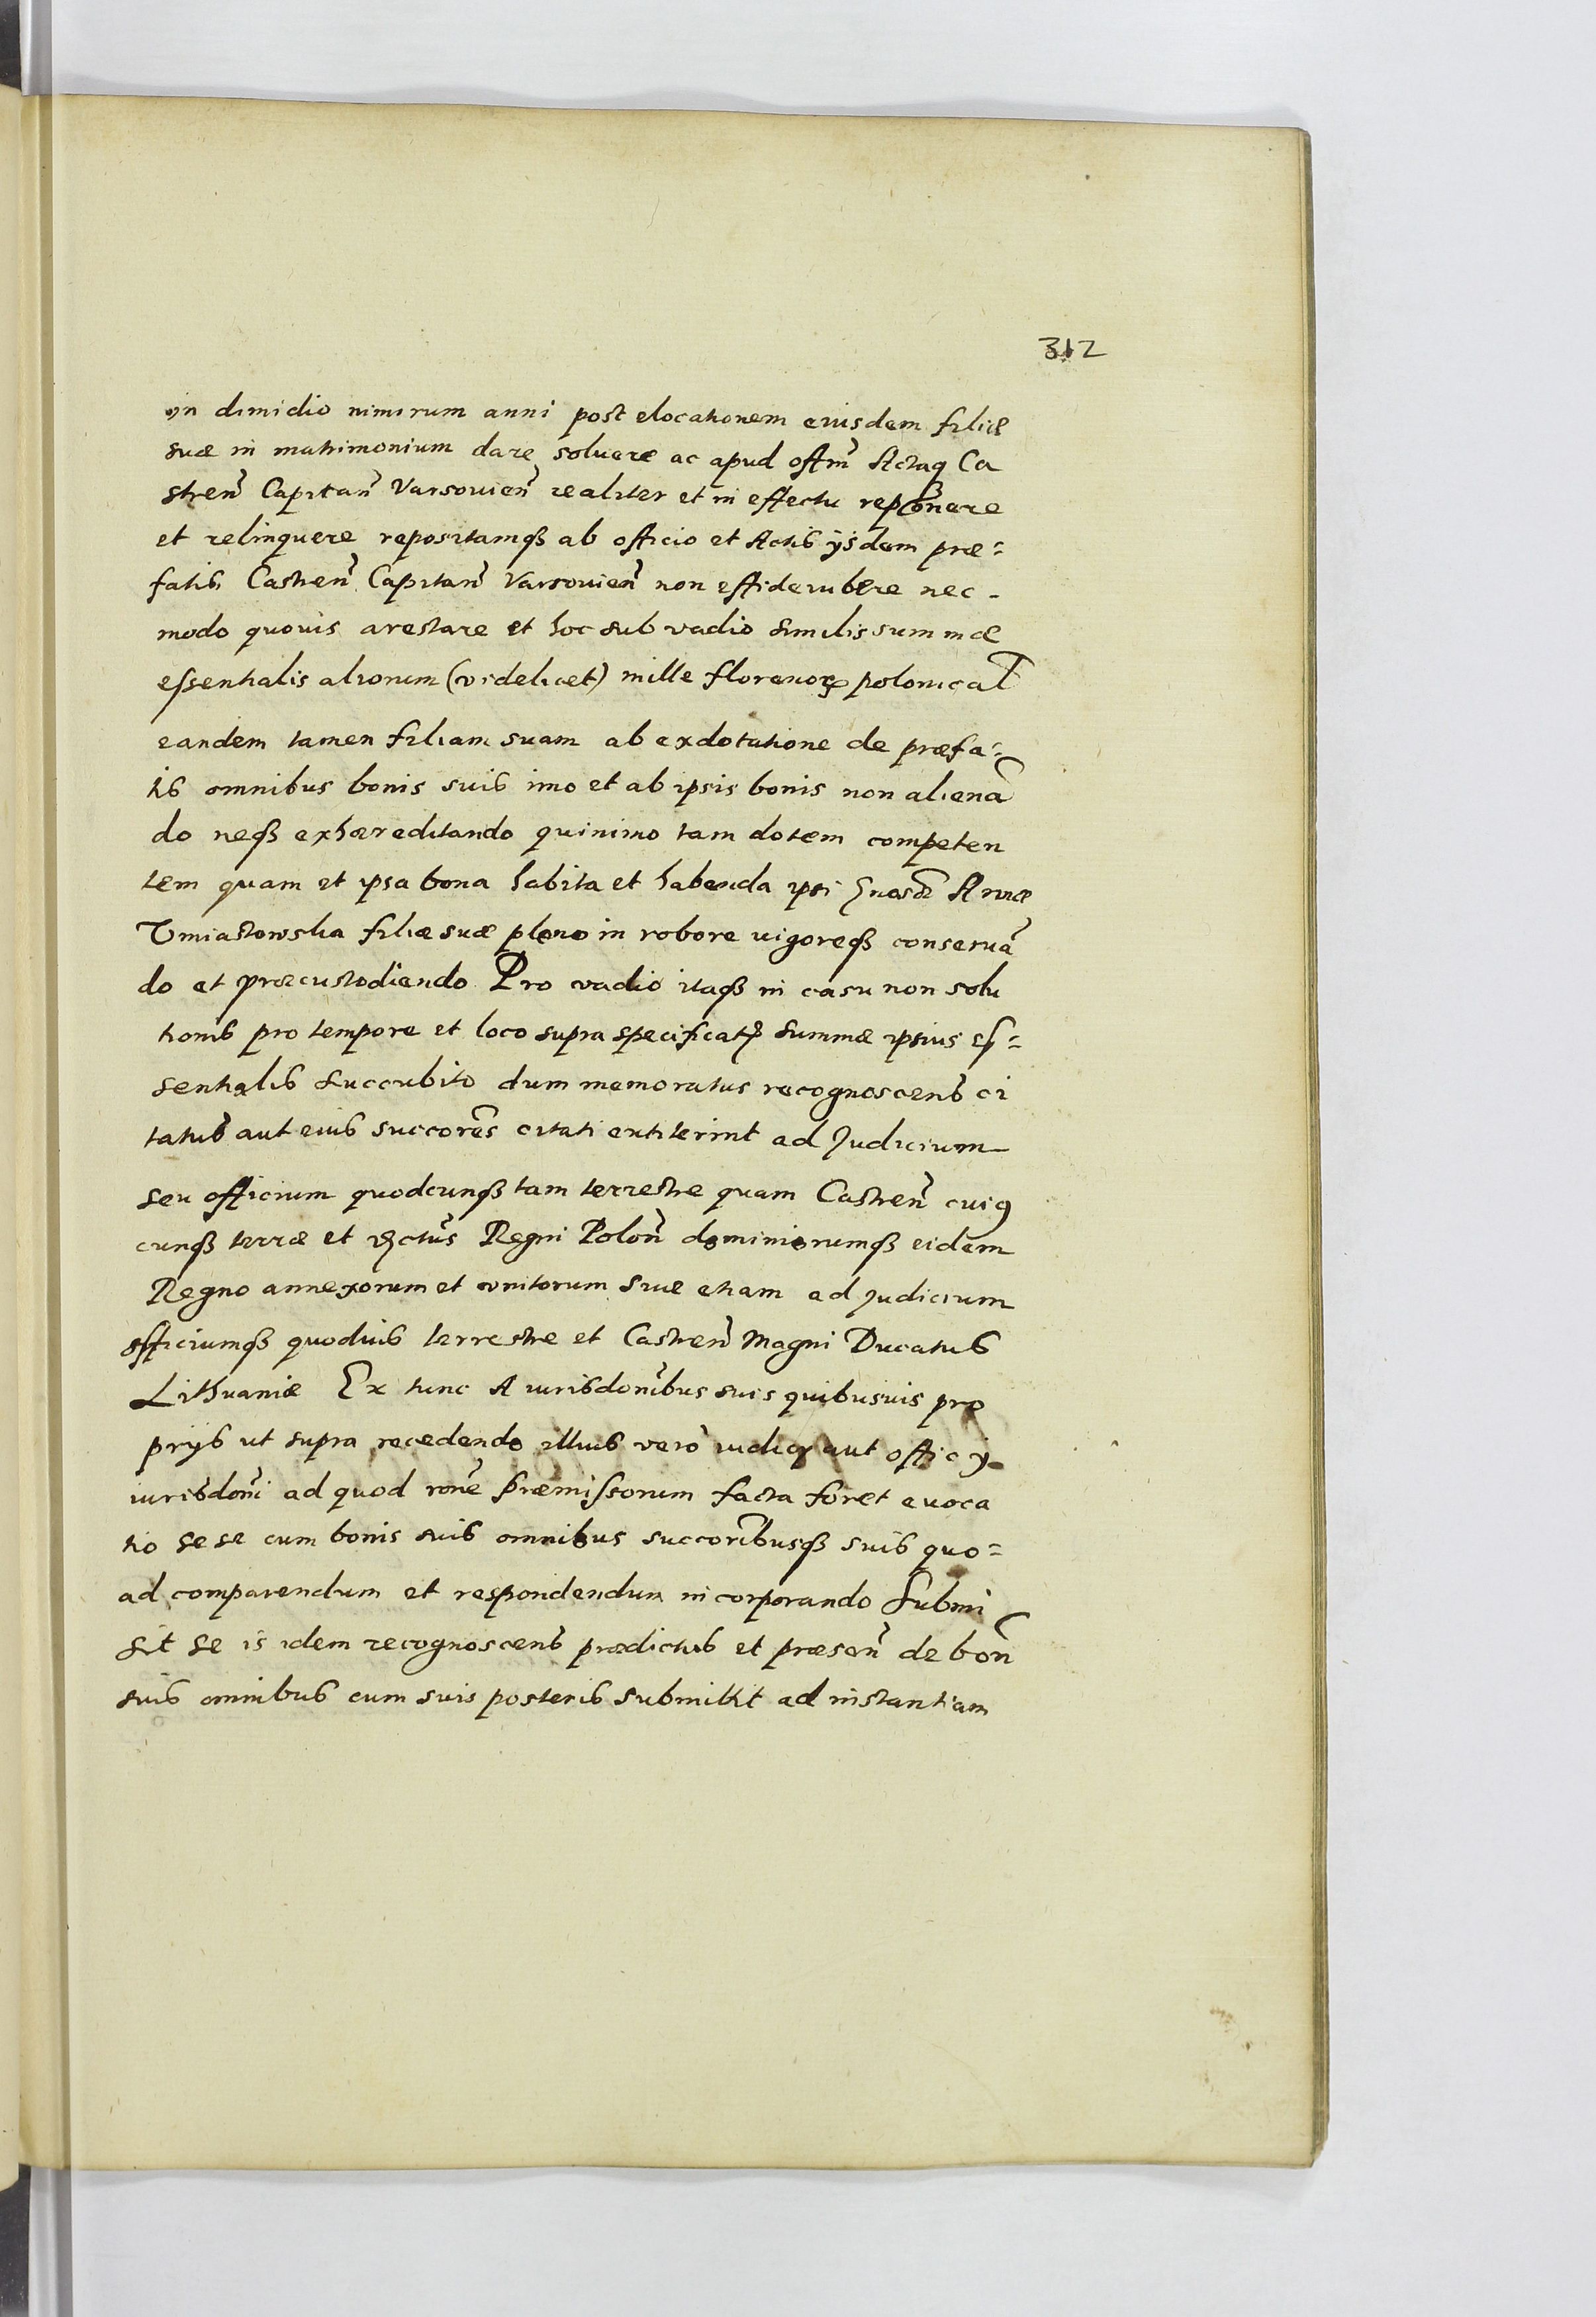 312
in dimidio nimirum anni post elocationem eiusdem filiæ
suæ in matrimonium dare soluere ac apud offm̃ Actaq Ca
streñ Capitañ Varsouieñ realiter et in effectu reponere
et relinquere repositamqȝ ab officio et Actis ijsdem præ=
fatis Castreñ Capitañ Varsouieñ non effiderubere nec
modo quouis arestare et hoc sub vadio similis summæ
essentialis aliorum (videlicet) mille florenorꝝ polonical
eandem tamen filiam suam ab exdotatione de præfa=
tis omnibus bonis suis imo et ab ipsis bonis non alienã
do neqȝ exhæreditando quinimo tam dotem competen
tem quam et ipsa bona habita et habenda ipsi Annæ
Vmiastowska filiæ suæ pleno in robore uigoreqȝ conseruã
do et præcustodiendo Pro vadio itaqȝ in casu non solu
tionis pro tempore et loco supra specificatꝭ summæ ipsius es=
sentialis succubito dum memoratus recognoscens ci
tatus aut eius succores̃ citati extiterint ad Judicium
seu officium quodcunqȝ tam terrestre quam Castreñ cuius
cunqȝ terræ et Regni Poloñ dominiorumqȝ eidem
Regno annexorum et vnitorum siue etiam ad Judicium
officiumqȝ quoduis terrestre et Castreñ Magni Ducatus
Lithuaniæ Ex tunc A iurisdonĩbus suis quibusuis pro
prijs ut supra recedendo illius verò iudicij aut officij
iurisdonĩ ad quod ronẽ̲ præmissorum facta foret euoca
tio sese cum bonis suis omnibus succorĩbusqȝ suis quo=
ad comparendum et respondendum incorporando Submi
sit se is idem recognoscens prædictus et præseñ de boñ
suis omnibus cum suis posteris submittit ad instantiam